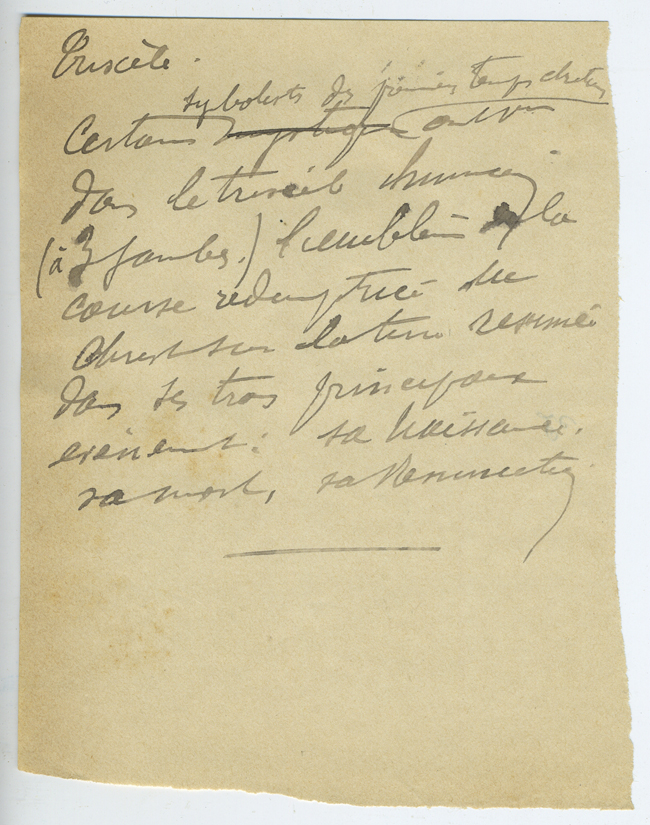 Triscèle.
symbolistes des premiers temps chrétiens
Certains mystiques ont vu
dans le triscèle
(à 3 jambes.) l'emblème de la
course rédemptrice du
Christ sur la terre résumée
dans ses trois principaux
evènements: sa Naissance.
sa mort, sa Résurrection